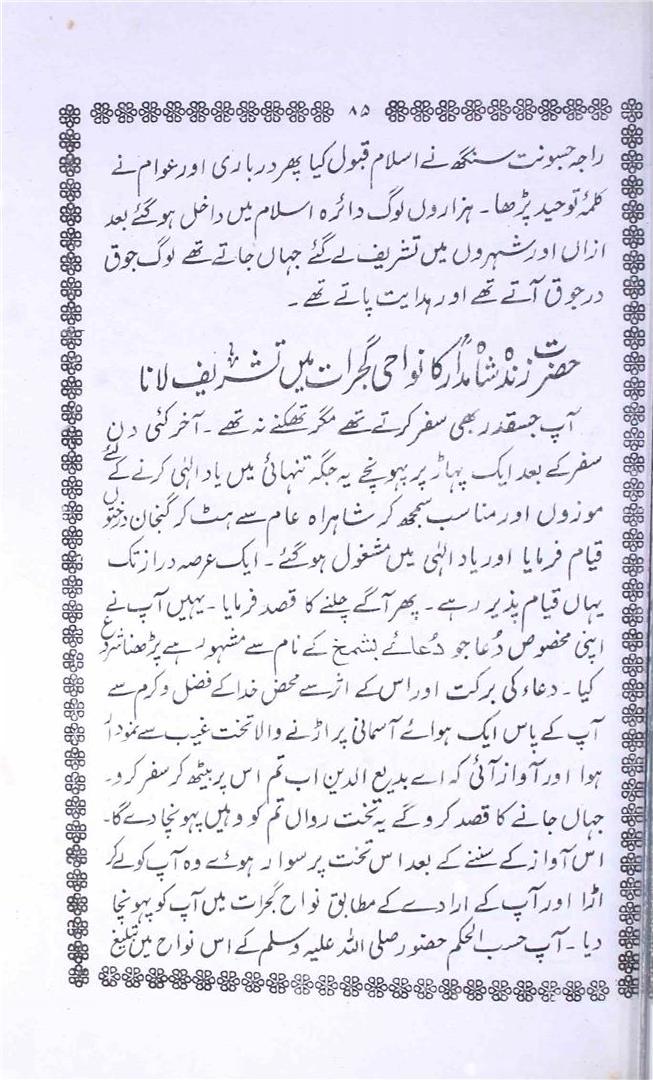 ۸۵
راجہ جسونت سنگھ نے اسلام قبول کیا پھر درباری اور عوام نے
کلمۂ توحید پڑھا۔ ہزاروں لوگ دائرہ اسلام میں داخل ہو گئے بعد
ازاں اور شہروں میں تشریف لے گئے جہاں جاتے تھے لوگ جوق
در جوق آتے تھے اور ہدایت پاتے تھے۔
حضرت زندہ شاہ مدار کا نواحی گجرات میں تشریف لانا
آپ جسقدر بھی سفر کرتے تھے مگر تھکنے نہ تھے۔ آخر کئی دن
سفر کے بعد ایک پہاڑ پر پہونچے یہ جگہ تنہائی میں یاد الٰہی کرنے کے لئے
موزوں اور مناسب سمجھ کر شاہراہ عام سے ہٹ کر گنجان درختوں
قیام فرمایا اور یاد الٰہی میں مشغول ہو گئے۔ ایک عرصہ دراز تک
یہاں قیام پذیر رہے۔ پھر آگے چلنے کا قصد فرمایا۔ یہیں آپ نے
اپنی مخصوص دُعا جو دُعائے بشمخ کے نام سے مشہور ہے پڑھنا شروع
کیا۔ دعاء کی برکت اور اس کے اثر سے محض خدا کے فضل و کرم سے
آپ کے پاس ایک ہوائے آسمانی پر اڑنے والا تخت غیب سے نمودار
ہوا اور آواز آئی کہ اے بدیع الدین اب تم اس پر بیٹھ کر سفر کرو۔
جہاں جانے کا قصد کرو گے یہ تخت رواں تم کو وہیں پہونچا دے گا۔
اس آواز کے سننے کے بعد اس تخت پر سوار ہوئے وہ آپ کو لے کر
اڑا اور آپ کے ارادے کے مطابق نواح گجرات میں آپ کو پہونچا
دیا۔ آپ حسب الحکم حضور صلی اللہ علیہ وسلم کے اس نواح میں تبلیغ